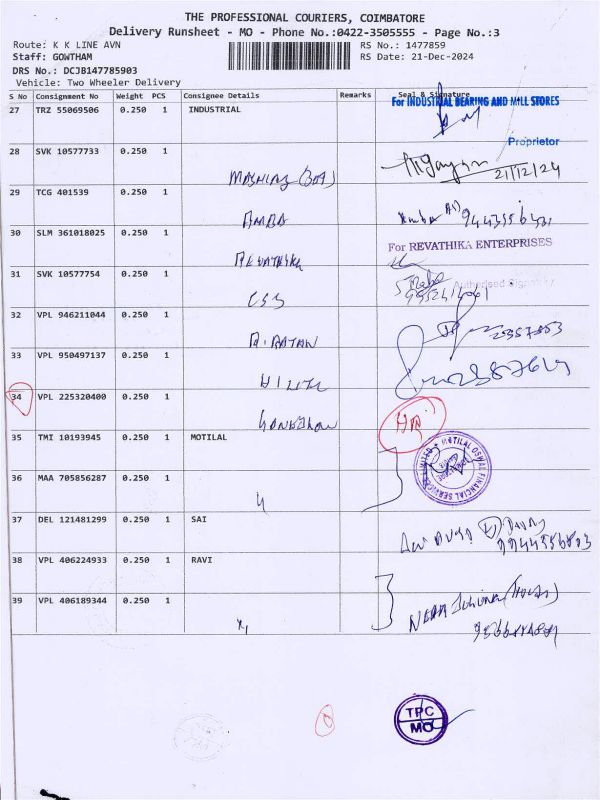 THE PROFESSIONAL COURIERS, COIMBATORE
Delivery Runsheet - MO - Phone No.:0422-3505555 - Page No.:3
Route: K K LINE AVN
RS No.: 1477859
Staff: GOWTHAM
RS Date: 21-Dec-2024
DRS No.: DCJB147785903
Vehicle: Two Wheeler Delivery
S No Consignment No Weight PCS Consignee Details Remarks Seal & Signature
27 TRZ 55069506 0.250 1 INDUSTRIAL
For INDUSTRIAL BEARING AND MILL STORES
Proprietor
28 SVK 10577733 0.250 1
21/12/24
29 TCG 401539 0.250 1
AMBA
30 SLM 361018025 0.250 1
For REVATHIKA ENTERPRISES
REVATHIKA
Authorised Signatory
31 SVK 10577754 0.250 1
CSS
32 VPL 946211044 0.250 1
RATAN
33 VPL 950497137 0.250 1
34 VPL 225320400 0.250 1
35 TMI 10193945 0.250 1 MOTILAL
MOTILAL OSWAL FINANCIAL SERVICES LIMITED
36 MAA 705856287 0.250 1
37 DEL 121481299 0.250 1 SAI
38 VPL 406224933 0.250 1 RAVI
39 VPL 406189344 0.250 1
TPC
MO